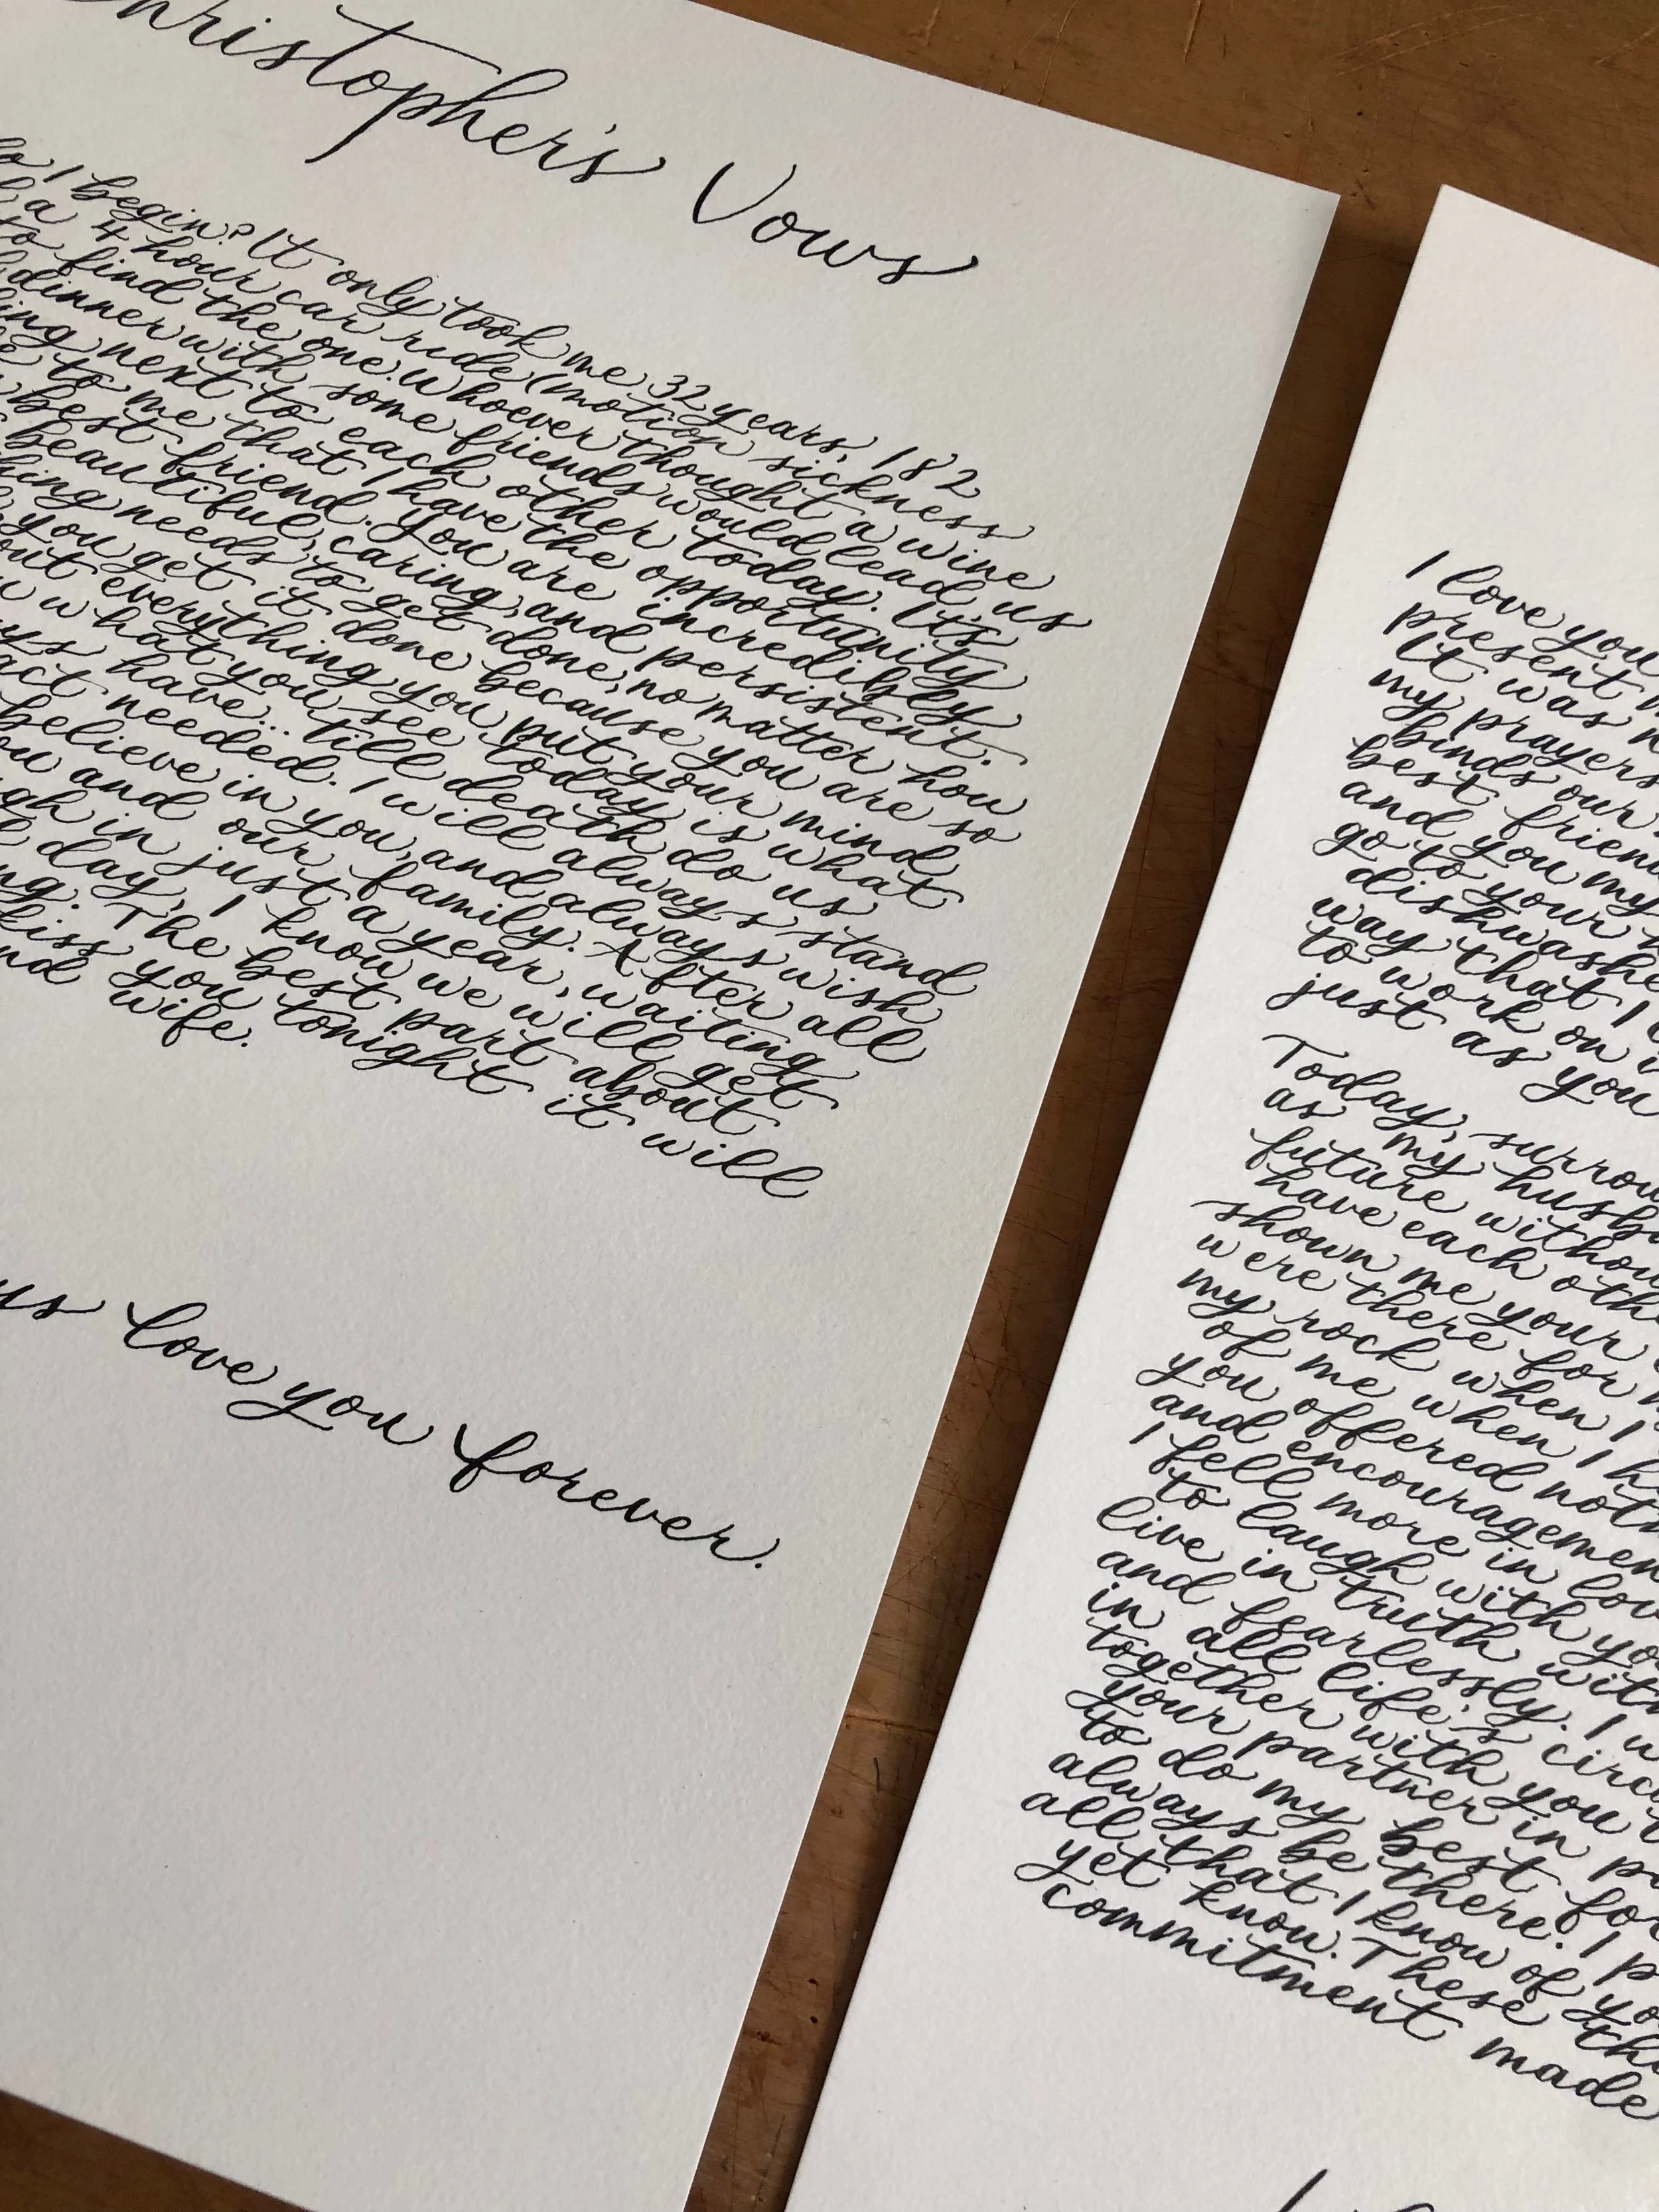 hristopher's Vows
do I begin? It only took me 32 years, 182
a 4 hour car ride (motion sickness
to find the one. Whoever thought a wine
dinner with some friends would lead us
ing next to each other today. It's
to me that I have the opportunity
best friend. You are incredibly
beautiful, caring, and persistent.
hing needs to get done, no matter how
you get it done because you are so
out everything you put your mind
what you see today is what
ys have... till death do us
act needed. I will always stand
believe in you, and always wish
ou and our family. After all
gh in just a year, waiting
day, I know we will get
ng. The best part about
kiss you tonight it will
nd wife.
us love you forever.
I love you
present
It was
my prayers
binds our
best friend
and you my
go to your
dishwashe
way that I
to work on
just as you
Today, surrou
as my husb
future withou
have each othe
shown me your
were there for
my rock when I
of me when I h
you offered noth
and encouragemen
I fell more in lov
to laugh with yo
live in truth with
and fearlessly. I w
in all life's circu
together with you
your partner in pa
to do my best for
always be there. I p
all that I know of yo
yet know. These thi
commitment made